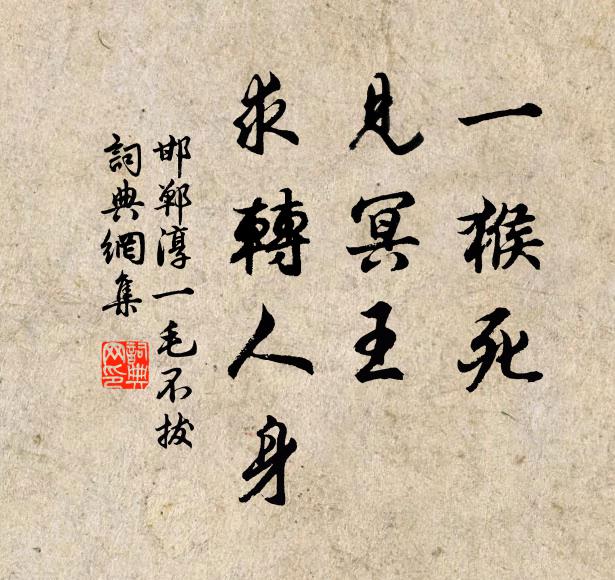 一猴死
見冥王
求轉人身
邯鄲淳一毛不拔
詞典網集
詞典
网印